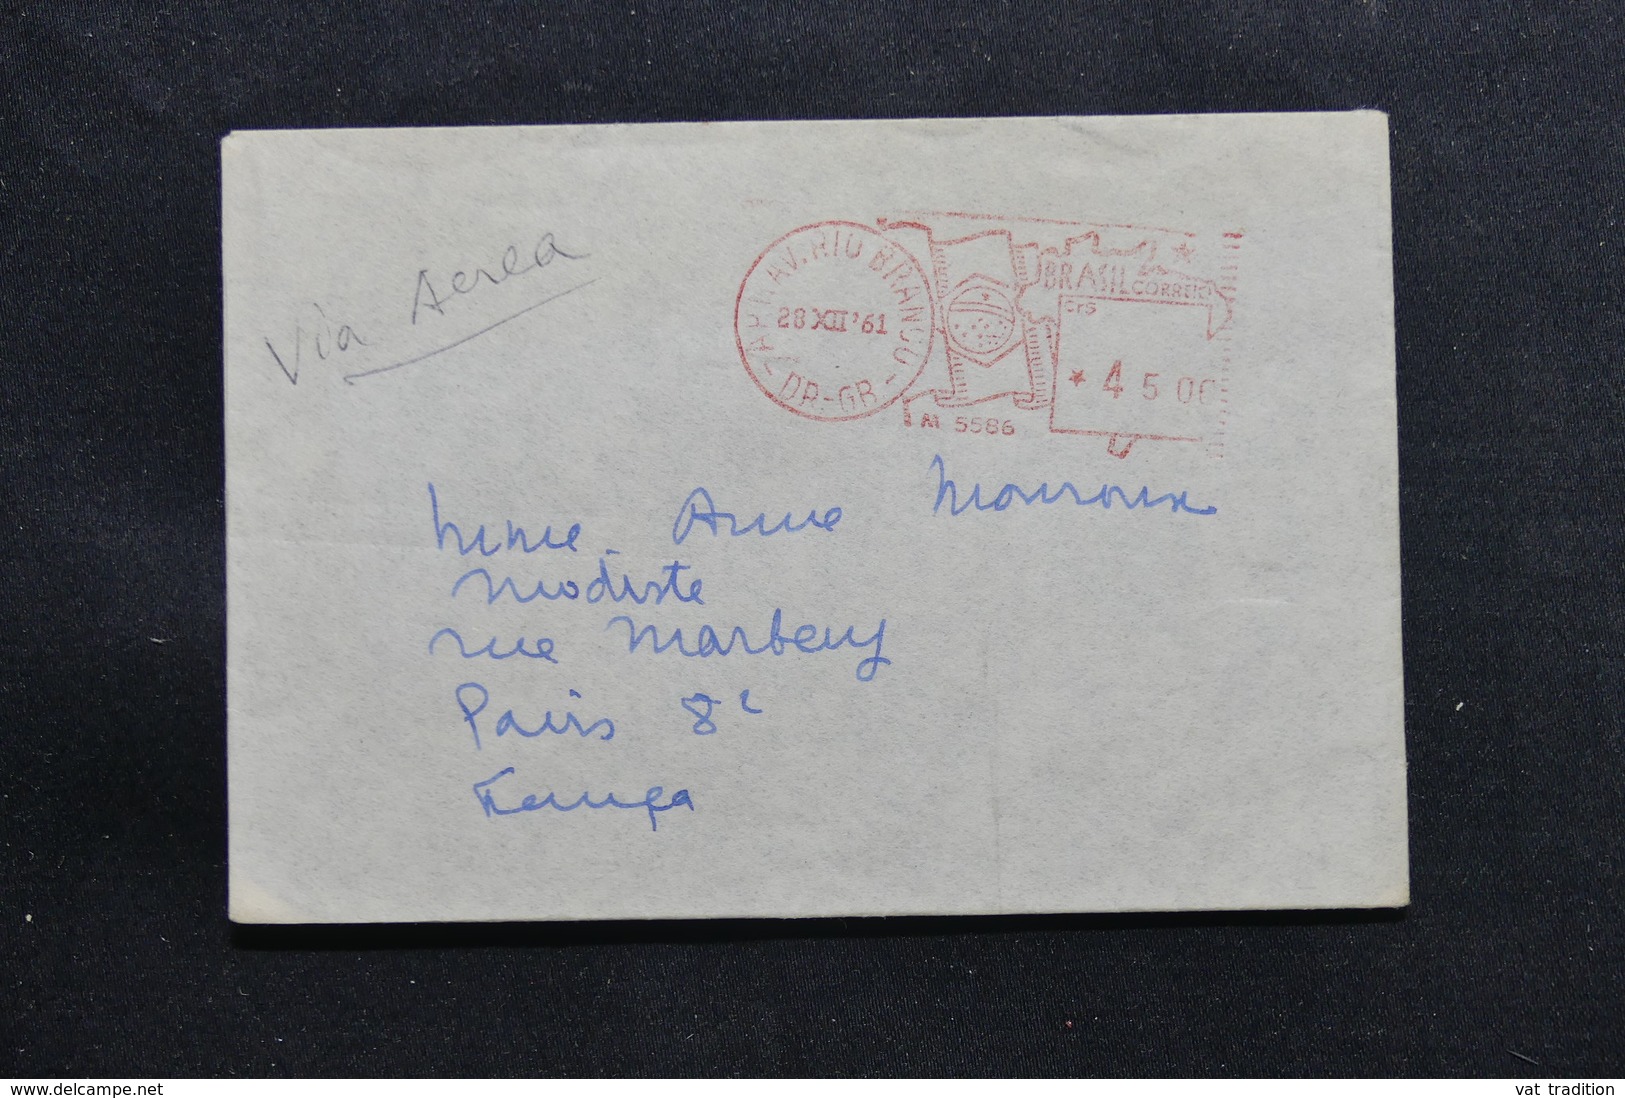 Via Aerea
AV. RIO BRANCO
28 XII '61
DR-GB
BRASIL CORREIO
Crs
* 4 5 00
M 5586
Mme. Anne
Modiste
rue Marbeuf
Paris 8e
França
delcampe.net
vat tradition